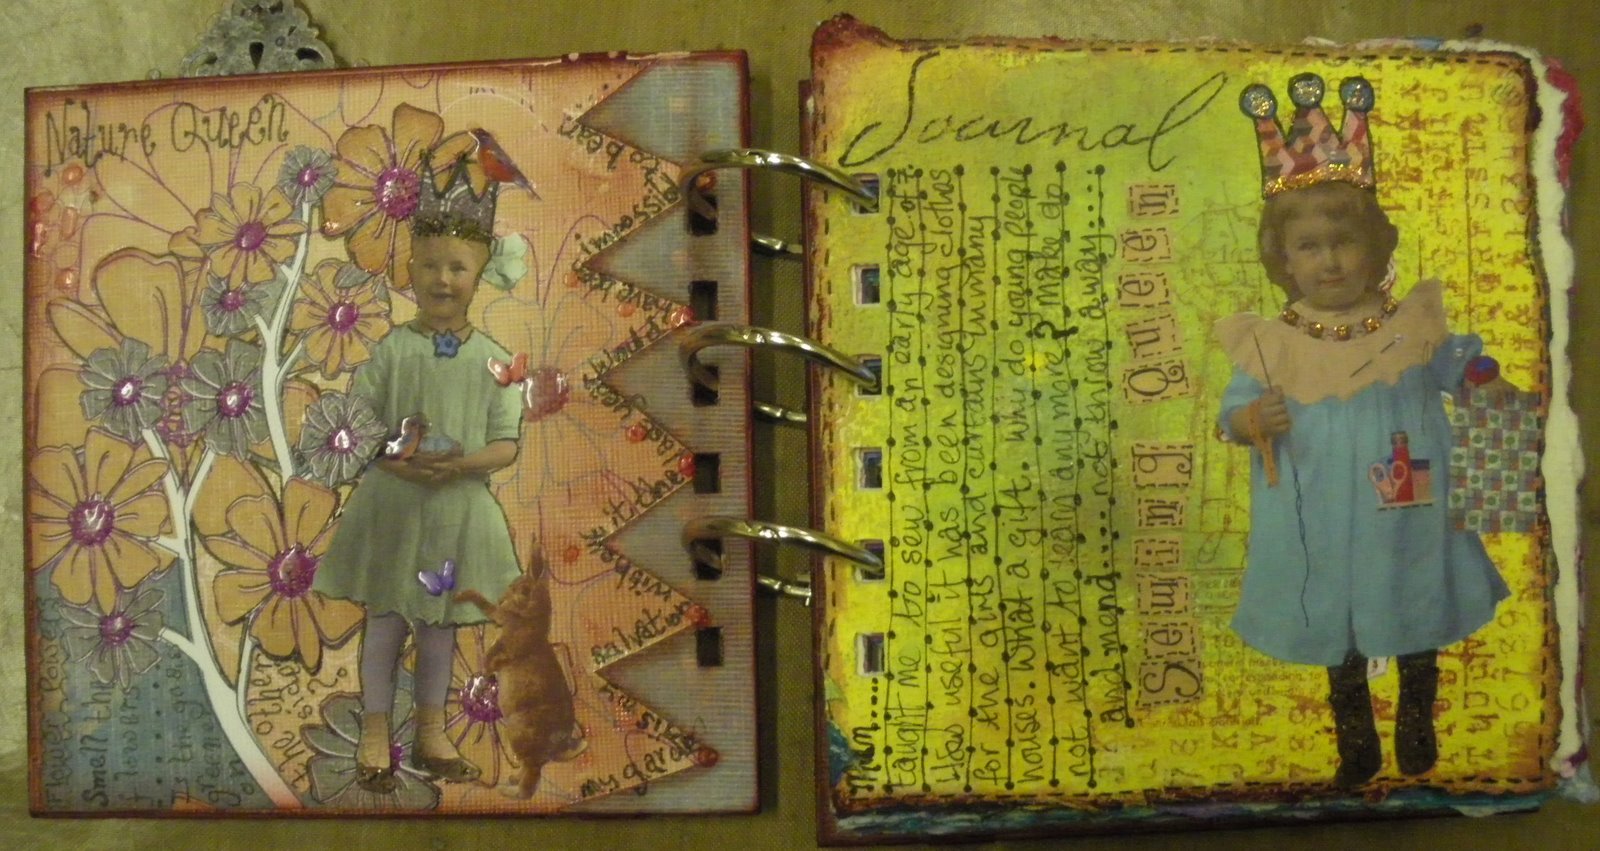 Nature Queen
Flower Power
Smell the
flowers
Is the grass
greener
on
the other
side?
my garden
is my
salvation
last year
would
impossible
to bear
Journal
Mum......
taught me to sew from an early age of 7.
How useful it has been designing cloths
for the girls and curtains 4 many
houses. What a gift. Why do young people
not want to learn anymore? make do
and mend....not throw away.....
Sewing Queen